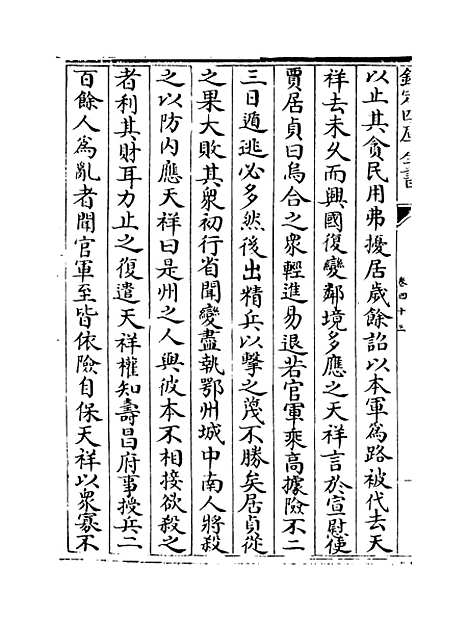 欽定四庫全書
卷四十三
以止其貪民用弗擾居歲餘詔以本軍為路被代去天
祥去未久而興國復變鄰境多應之天祥言於宣慰使
賈居貞曰烏合之衆輕進易退若官軍乘高據險不二
三日遁逃必多然後出精兵以擊之蔑不勝矣居貞從
之果大敗其衆初行省聞變盡執鄂州城中南人將殺
之以防内應天祥曰是州之人與彼本不相接欲殺之
者利其財耳力止之復遣天祥權知壽昌府事授兵二
百餘人為亂者聞官軍至皆依險自保天祥以衆寡不